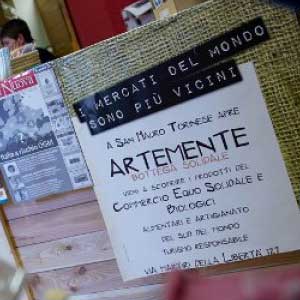 Nuova
I MERCATI DEL MONDO
SONO PIÙ VICINI
A SAN MAURO TORINESE APRE
ARTEMENTE
BOTTEGA SOLIDALE
VIENI A SCOPRIRE I PRODOTTI DEL
COMMERCIO EQUO SOLIDALE E
BIOLOGICI
ALIMENTARI E ARTIGIANATO
DEL SUD DEL MONDO
TURISMO RESPONSABILE
VIA MARTIRI DELLA LIBERTÀ 127